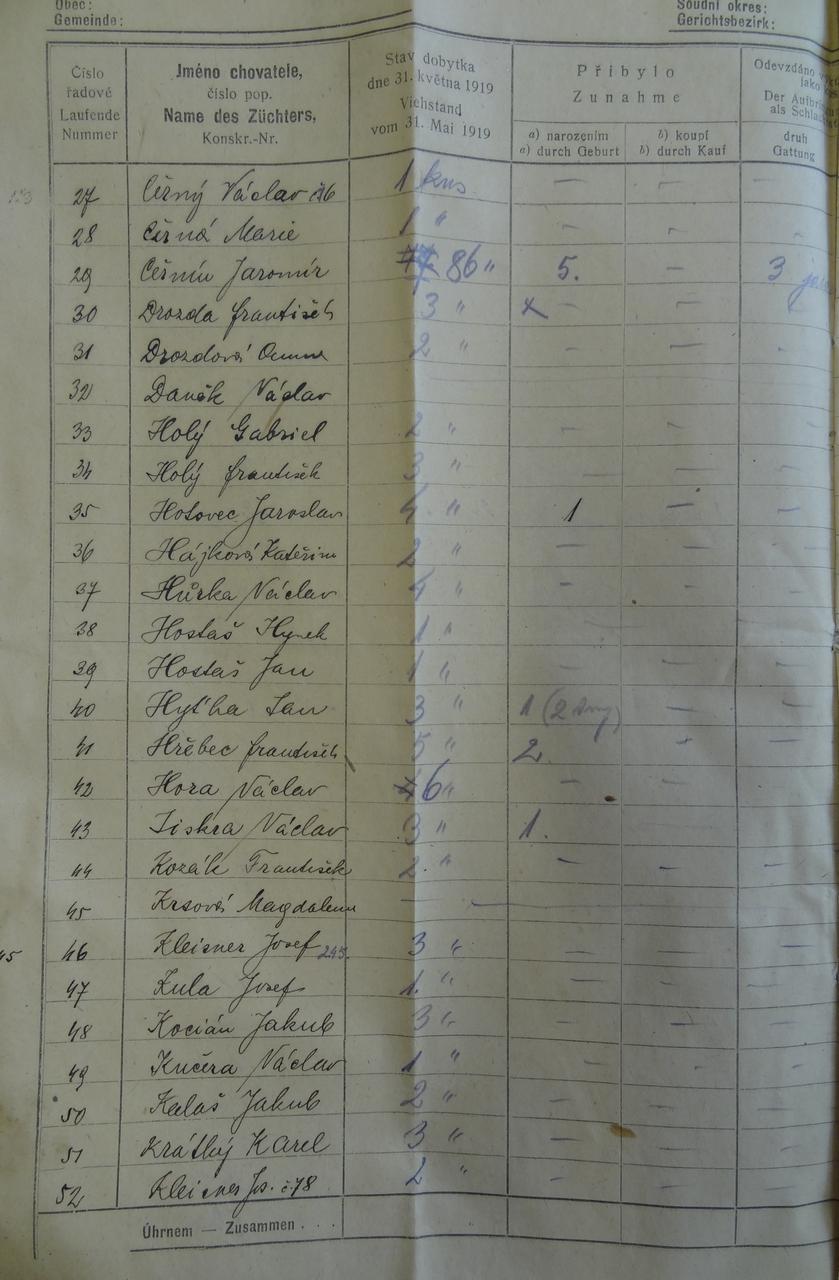 Obec:
Gemeinde:
Soudní okres:
Gerichtsbezirk:
Číslo řadové Laufende Nummer
Jméno chovatele, číslo pop. Name des Züchters, Konskr.-Nr.
Stav dobytka dne 31. května 1919 Viehstand vom 31. Mai 1919
Přibylo Zunahme
a) narozením a) durch Geburt
b) koupí b) durch Kauf
Odevzdáno jako Der Aufbri als Schla
druh Gattung
27 Černý Václav 1 kus — —
28 Černá Marie 1 " — —
29 Černín Jaromír 86 " 5. — 3
30 Drozda František 3 " x — —
31 Drozdová Anna 2 " — — —
32 Daněk Václav
33 Holý Gabriel 2 " — — —
34 Holý František 3 " — — —
35 Hotovec Jaroslav 4 " 1 — —
36 Hájková Kateřina 2 " — — —
37 Hůrka Václav 4 " — — —
38 Hostaš Hynek 1 "
39 Hostaš Jan 1 " — — —
40 Hyťha Jan 3 " 1 — —
41 Hřěbec František 5 " 2 — —
42 Hora Václav 6 " — —
43 Jiskra Václav 3 " 1.
44 Kozák František 2 " — — —
45 Krsová Magdalena — —
46 Kleisner Josef 245. 3 " — — —
47 Kula Josef 1. " — — —
48 Kocián Jakub 3 " — — —
49 Kučera Václav 1 " — — —
50 Kalaš Jakub 2 " — — —
51 Krátký Karel 3 " — — —
52 Kleisner Js. č 78 2 " — — —
Úhrnem — Zusammen . . .